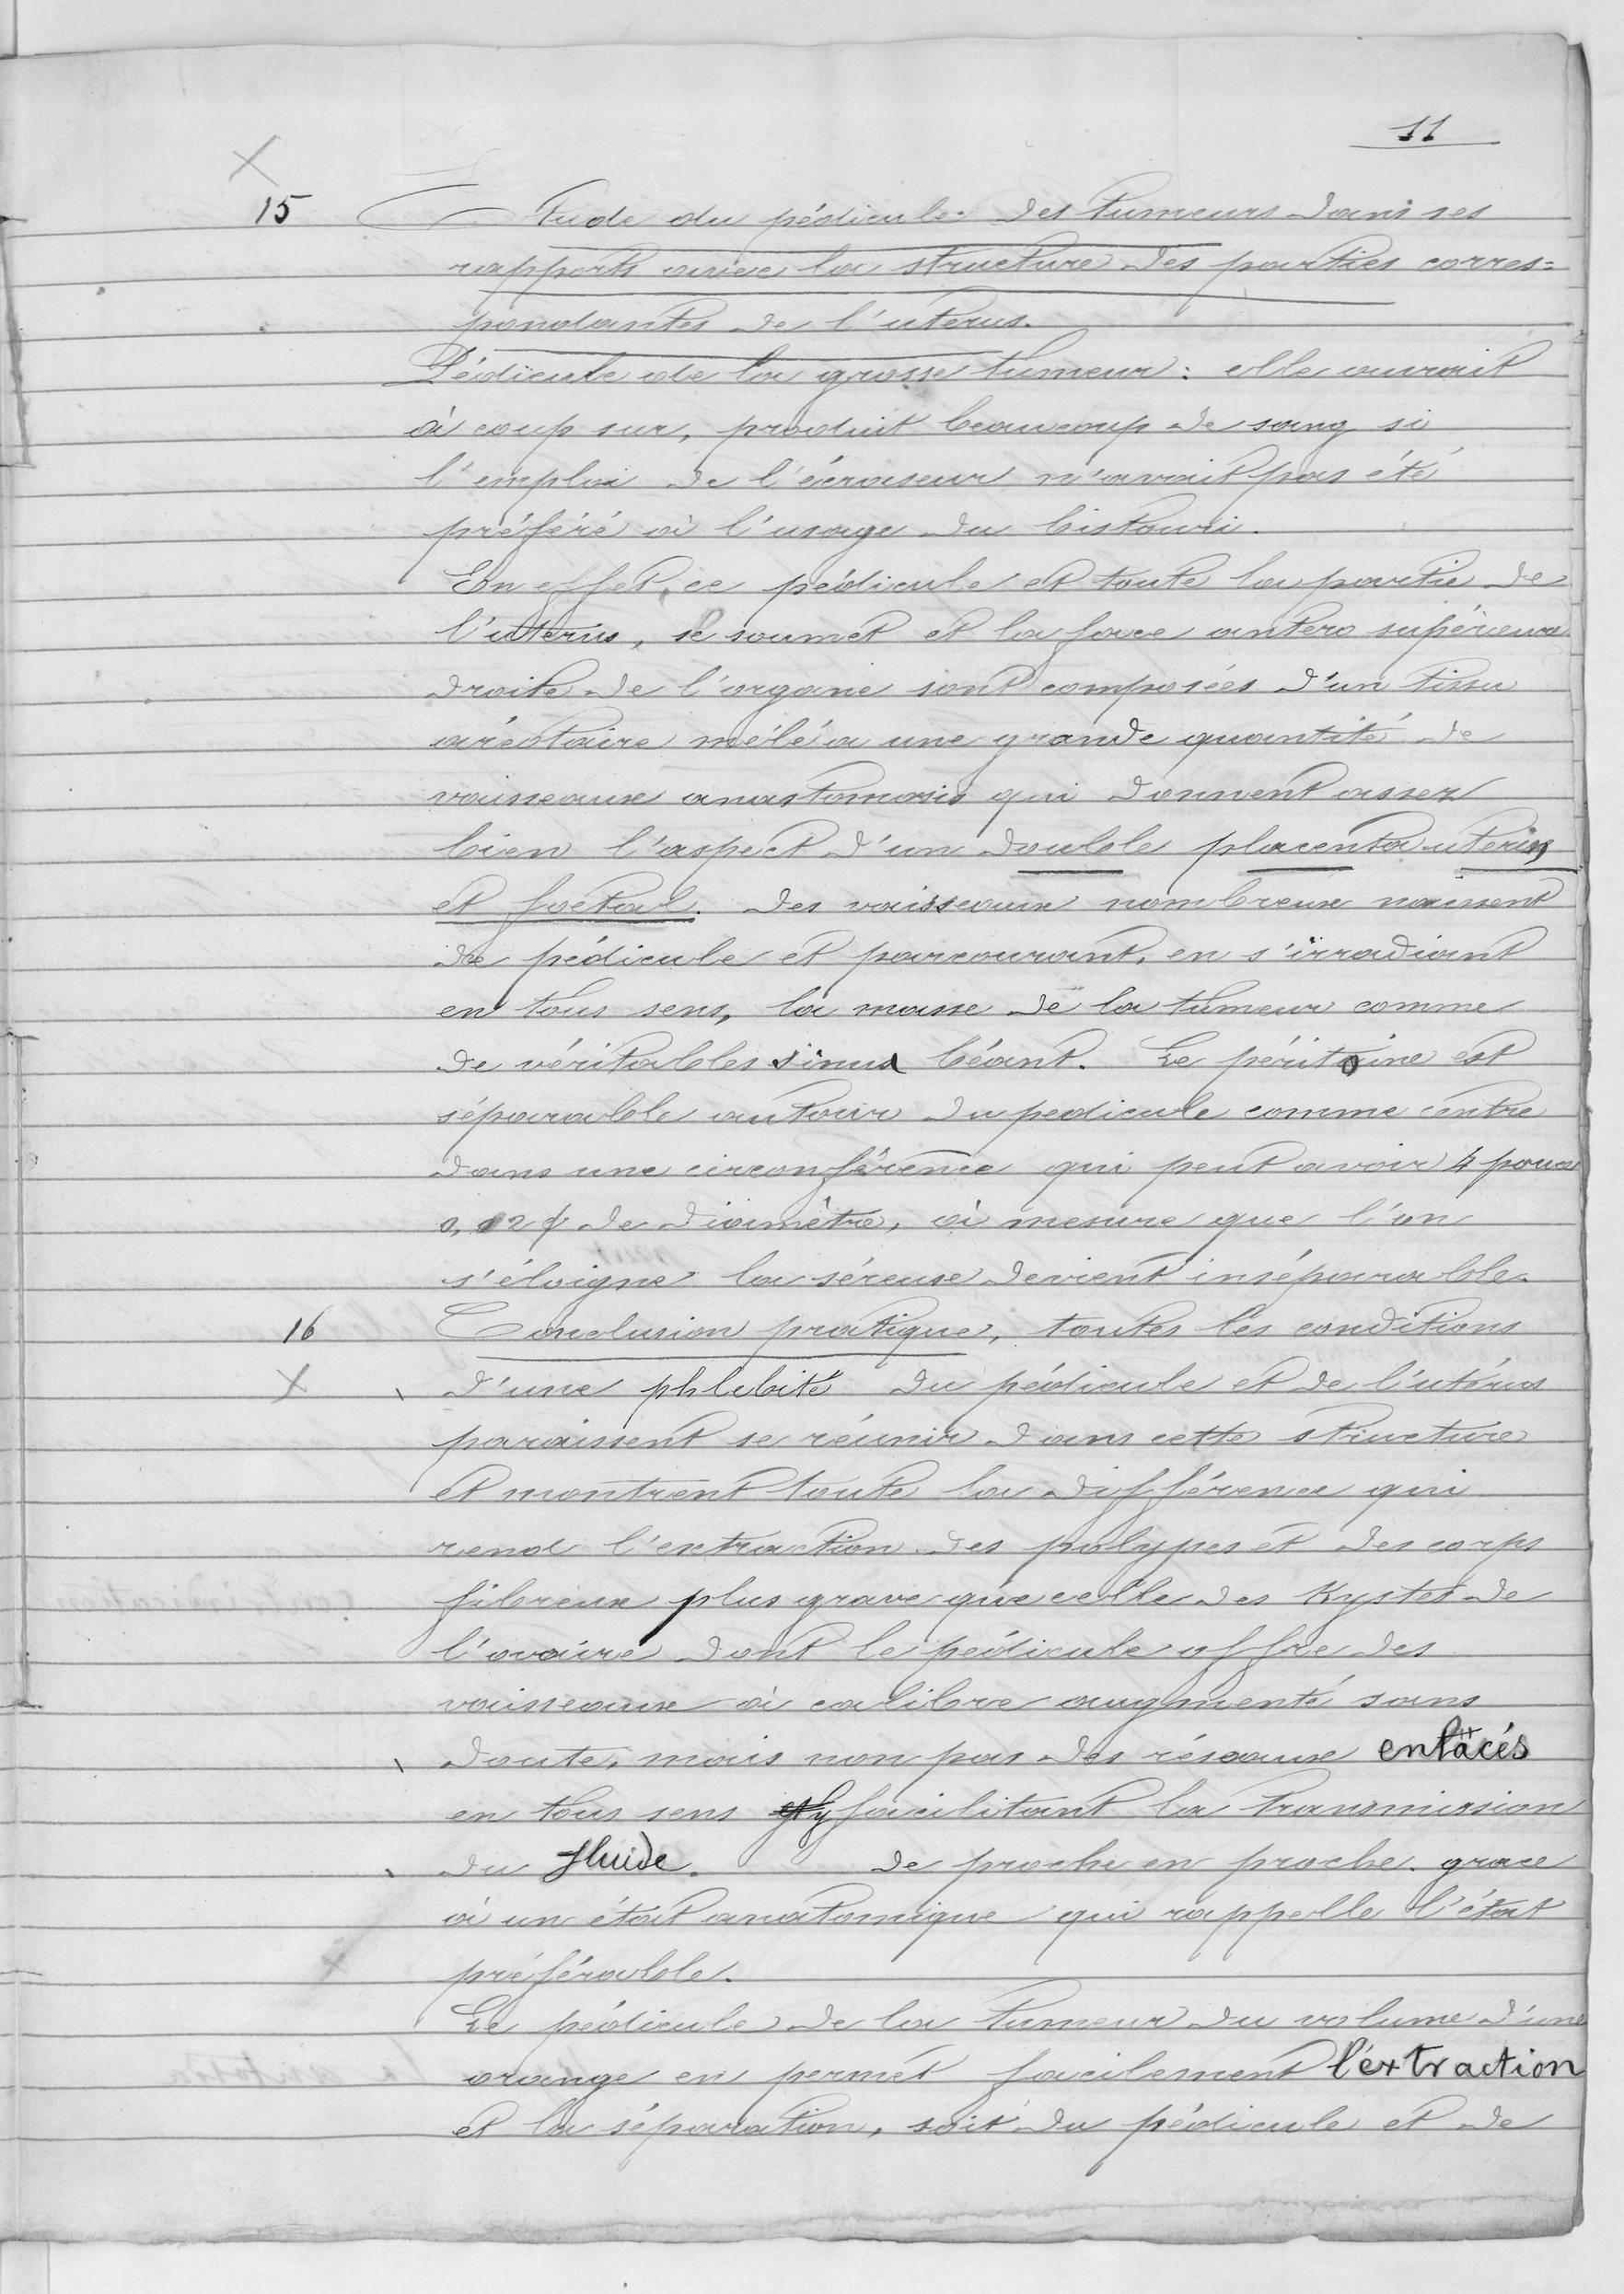 11
15 Etude du pédicule des tumeurs dans ses
rapports avec la structure des parties corres=
pondantes de l'uterus.
Pédicule de la grosse tumeur : elle auvrait
à coup sur, produit beaucoup de sang si
l'emploi de l'écraseur n'avait pas été
préféré à l'usage du bistouri.
En effet, ce pédicule et toute la partie de
l'uterus, se soumet et la face antero supérieur
droite de l'organe sont composées d'un tissu
aréolaire mélé a une grande quantité de
vaisseaux anastomosis qui donnent assez
bien l'aspect d'un double placenta uterin
et foetal. des vaisseaux nombreux naissent
de pédicule et parcourant, en s'irradiant
en tous sens, la masse de la tumeur comme
de véritables sinus béant. Le péritoine est
séparable autour du pedicule comme centre
dans une circonférence qui peut avoir 4 pouces
0,12 de diamètre, à mesure que l'on
s'éloigne la séreuse devient inséparable.
16 Conclusion pratique, toutes les conditions
d'une phlebité du pédicule et de l'utérus
paraissent se réunir dans cette structure
et montrent toute la différence qui
rend l'extraction des polypes et des corps
fibreux plus grave que celle des Kystes de
l'ovaire dont le pédicule offre des
vaisseaux à calibre augmenté sans
doute, mais non pas des réseaux enlacés
en tous sens facilitant la transmission
du fluide. de proche en proche. grace
à un état anatomique qui rappelle l'état
préférable.
Le pédicule de la tumeur du volume d'une
orange en permet facilement l'éxtraction
et la séparation, soit du pédicule et de